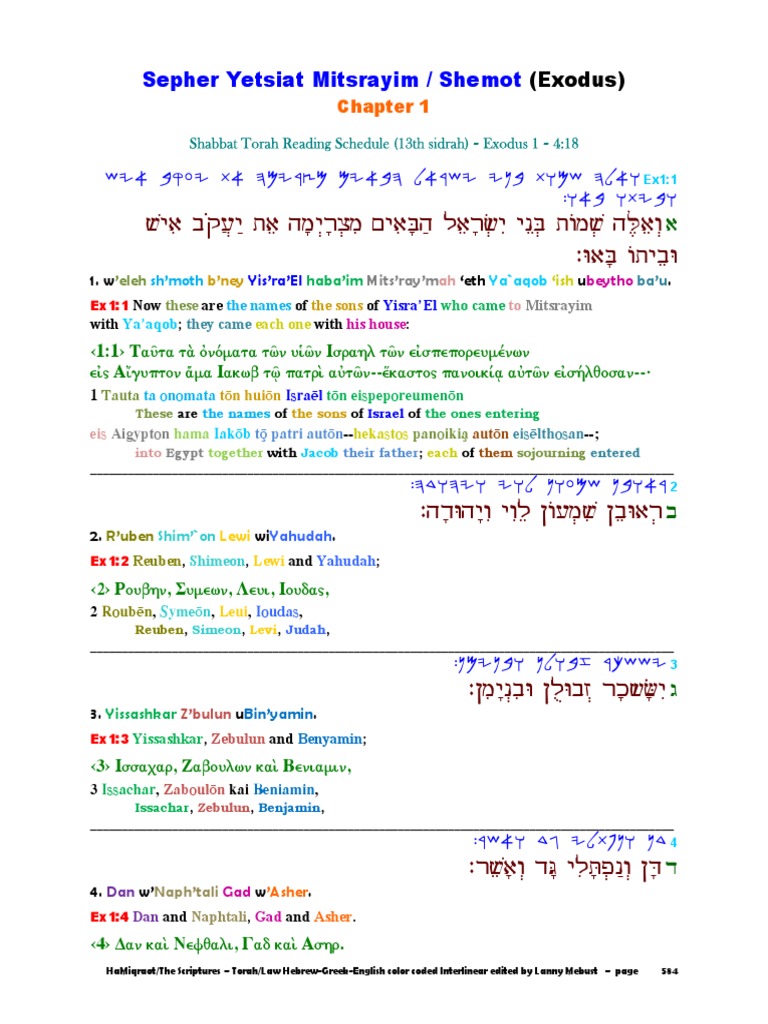 Sepher Yetsiat Mitsrayim / Shemot (Exodus)
Chapter 1
Shabbat Torah Reading Schedule (13th sidrah) - Exodus 1 - 4:18
Ex1:1 𐤅𐤀𐤋𐤄 𐤔𐤌𐤅𐤕 𐤁𐤍𐤉 𐤉𐤔𐤓𐤀𐤋 𐤄𐤁𐤀𐤉𐤌 𐤌𐤑𐤓𐤉𐤌𐤄 𐤀𐤕 𐤉𐤏𐤒𐤁 𐤀𐤉𐤔
𐤅𐤁𐤉𐤕𐤅 𐤁𐤀𐤅:
א וְאֵלֶּה שְׁמוֹת בְּנֵי יִשְׂרָאֵל הַבָּאִים מִצְרָיְמָה אֵת יַעֲקֹב אִישׁ
וּבֵיתוֹ בָּאוּ׃
1. w'eleh sh'moth b'ney Yis'ra'El haba'im Mits'ray'mah 'eth Ya`aqob 'ish ubeytho ba'u.
Ex1:1 Now these are the names of the sons of Yisra'El who came to Mitsrayim
with Ya'aqob; they came each one with his house:
‹1:1› Ταῦτα τὰ ὀνόματα τῶν υἱῶν Ισραηλ τῶν εἰσπεπορευμένων
εἰς Αἴγυπτον ἅμα Ιακωβ τῷ πατρὶ αὐτῶν--ἕκαστος πανοικίᾳ αὐτῶν εἰσήλθοσαν--·
1 Tauta ta onomata tōn huiōn Israēl tōn eispeporeumenōn
These are the names of the sons of Israel of the ones entering
eis Aigypton hama Iakōb tǭ patri autōn--hekastos panoikia̧ autōn eisēlthosan--;
into Egypt together with Jacob their father; each of them sojourning entered
2 𐤓𐤀𐤅𐤁𐤍 𐤔𐤌𐤏𐤅𐤍 𐤋𐤅𐤉 𐤅𐤉𐤄𐤅𐤃𐤄:
ב רְאוּבֵן שִׁמְעוֹן לֵוִי וִיהוּדָה׃
2. R'uben Shim'`on Lewi wiYahudah.
Ex1:2 Reuben, Shimeon, Lewi and Yahudah;
‹2› Ρουβην, Συμεων, Λευι, Ιουδας,
2 Roubēn, Symeōn, Leui, Ioudas,
Reuben, Simeon, Levi, Judah,
3 𐤉𐤔𐤔𐤊𐤓 𐤆𐤁𐤅𐤋𐤍 𐤅𐤁𐤍𐤉𐤌𐤍:
ג יִשָּׂשכָר זְבוּלֻן וּבִנְיָמִן׃
3. Yissashkar Z'bulun uBin'yamin.
Ex1:3 Yissashkar, Zebulun and Benyamin;
‹3› Ισσαχαρ, Ζαβουλων καὶ Βενιαμιν,
3 Issachar, Zaboulōn kai Beniamin,
Issachar, Zebulun, Benjamin,
4 𐤃𐤍 𐤅𐤍𐤐𐤕𐤋𐤉 𐤂𐤃 𐤅𐤀𐤔𐤓:
ד דָּן וְנַפְתָּלִי גָּד וְאָשֵׁר׃
4. Dan w'Naph'tali Gad w'Asher.
Ex1:4 Dan and Naphtali, Gad and Asher.
‹4› Δαν καὶ Νεφθαλι, Γαδ καὶ Ασηρ.
HaMiqraot/The Scriptures – Torah/Law Hebrew-Greek-English color coded Interlinear edited by Lanny Mebust – page 584